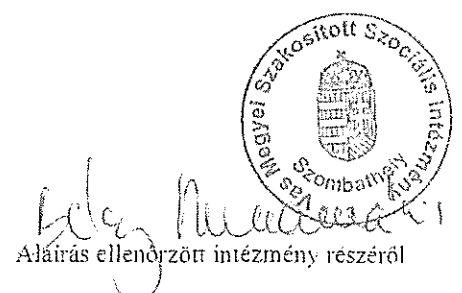 Vas Megyei Szakosított Szociális Intézmény
Szombathely
Aláírás ellenőrzött intézmény részéről